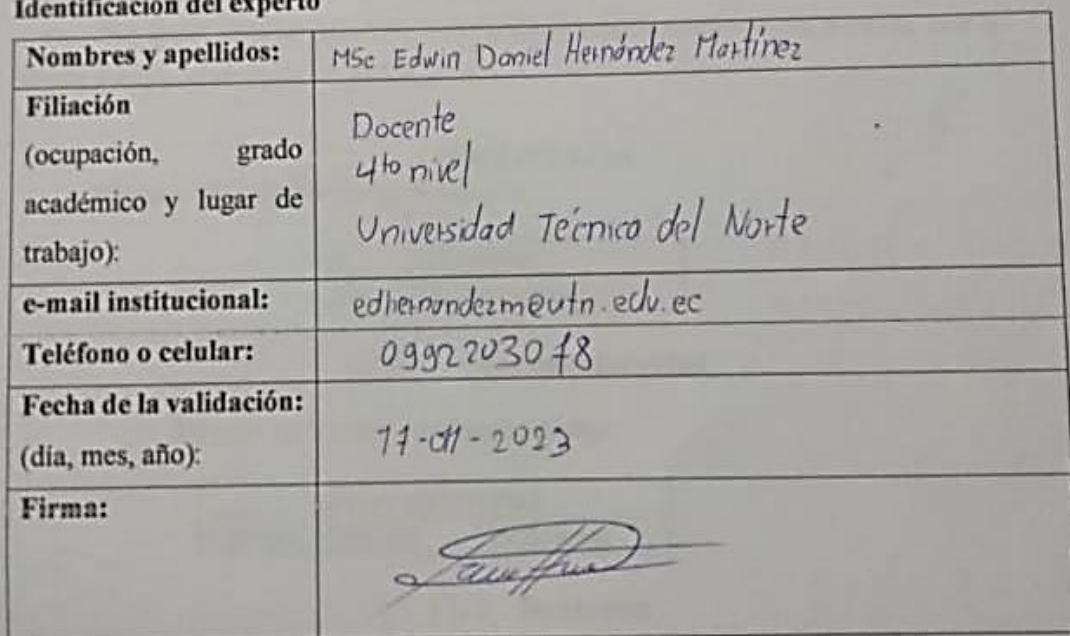 Identificación del experto
Nombres y apellidos: MSc Edwin Daniel Hernández Martínez
Filiación
(ocupación, grado
académico y lugar de
trabajo):
Docente
4to nivel
Universidad Técnica del Norte
e-mail institucional: edhernandezm@utn.edu.ec
Teléfono o celular: 0992203078
Fecha de la validación:
(día, mes, año):
-2023
Firma: